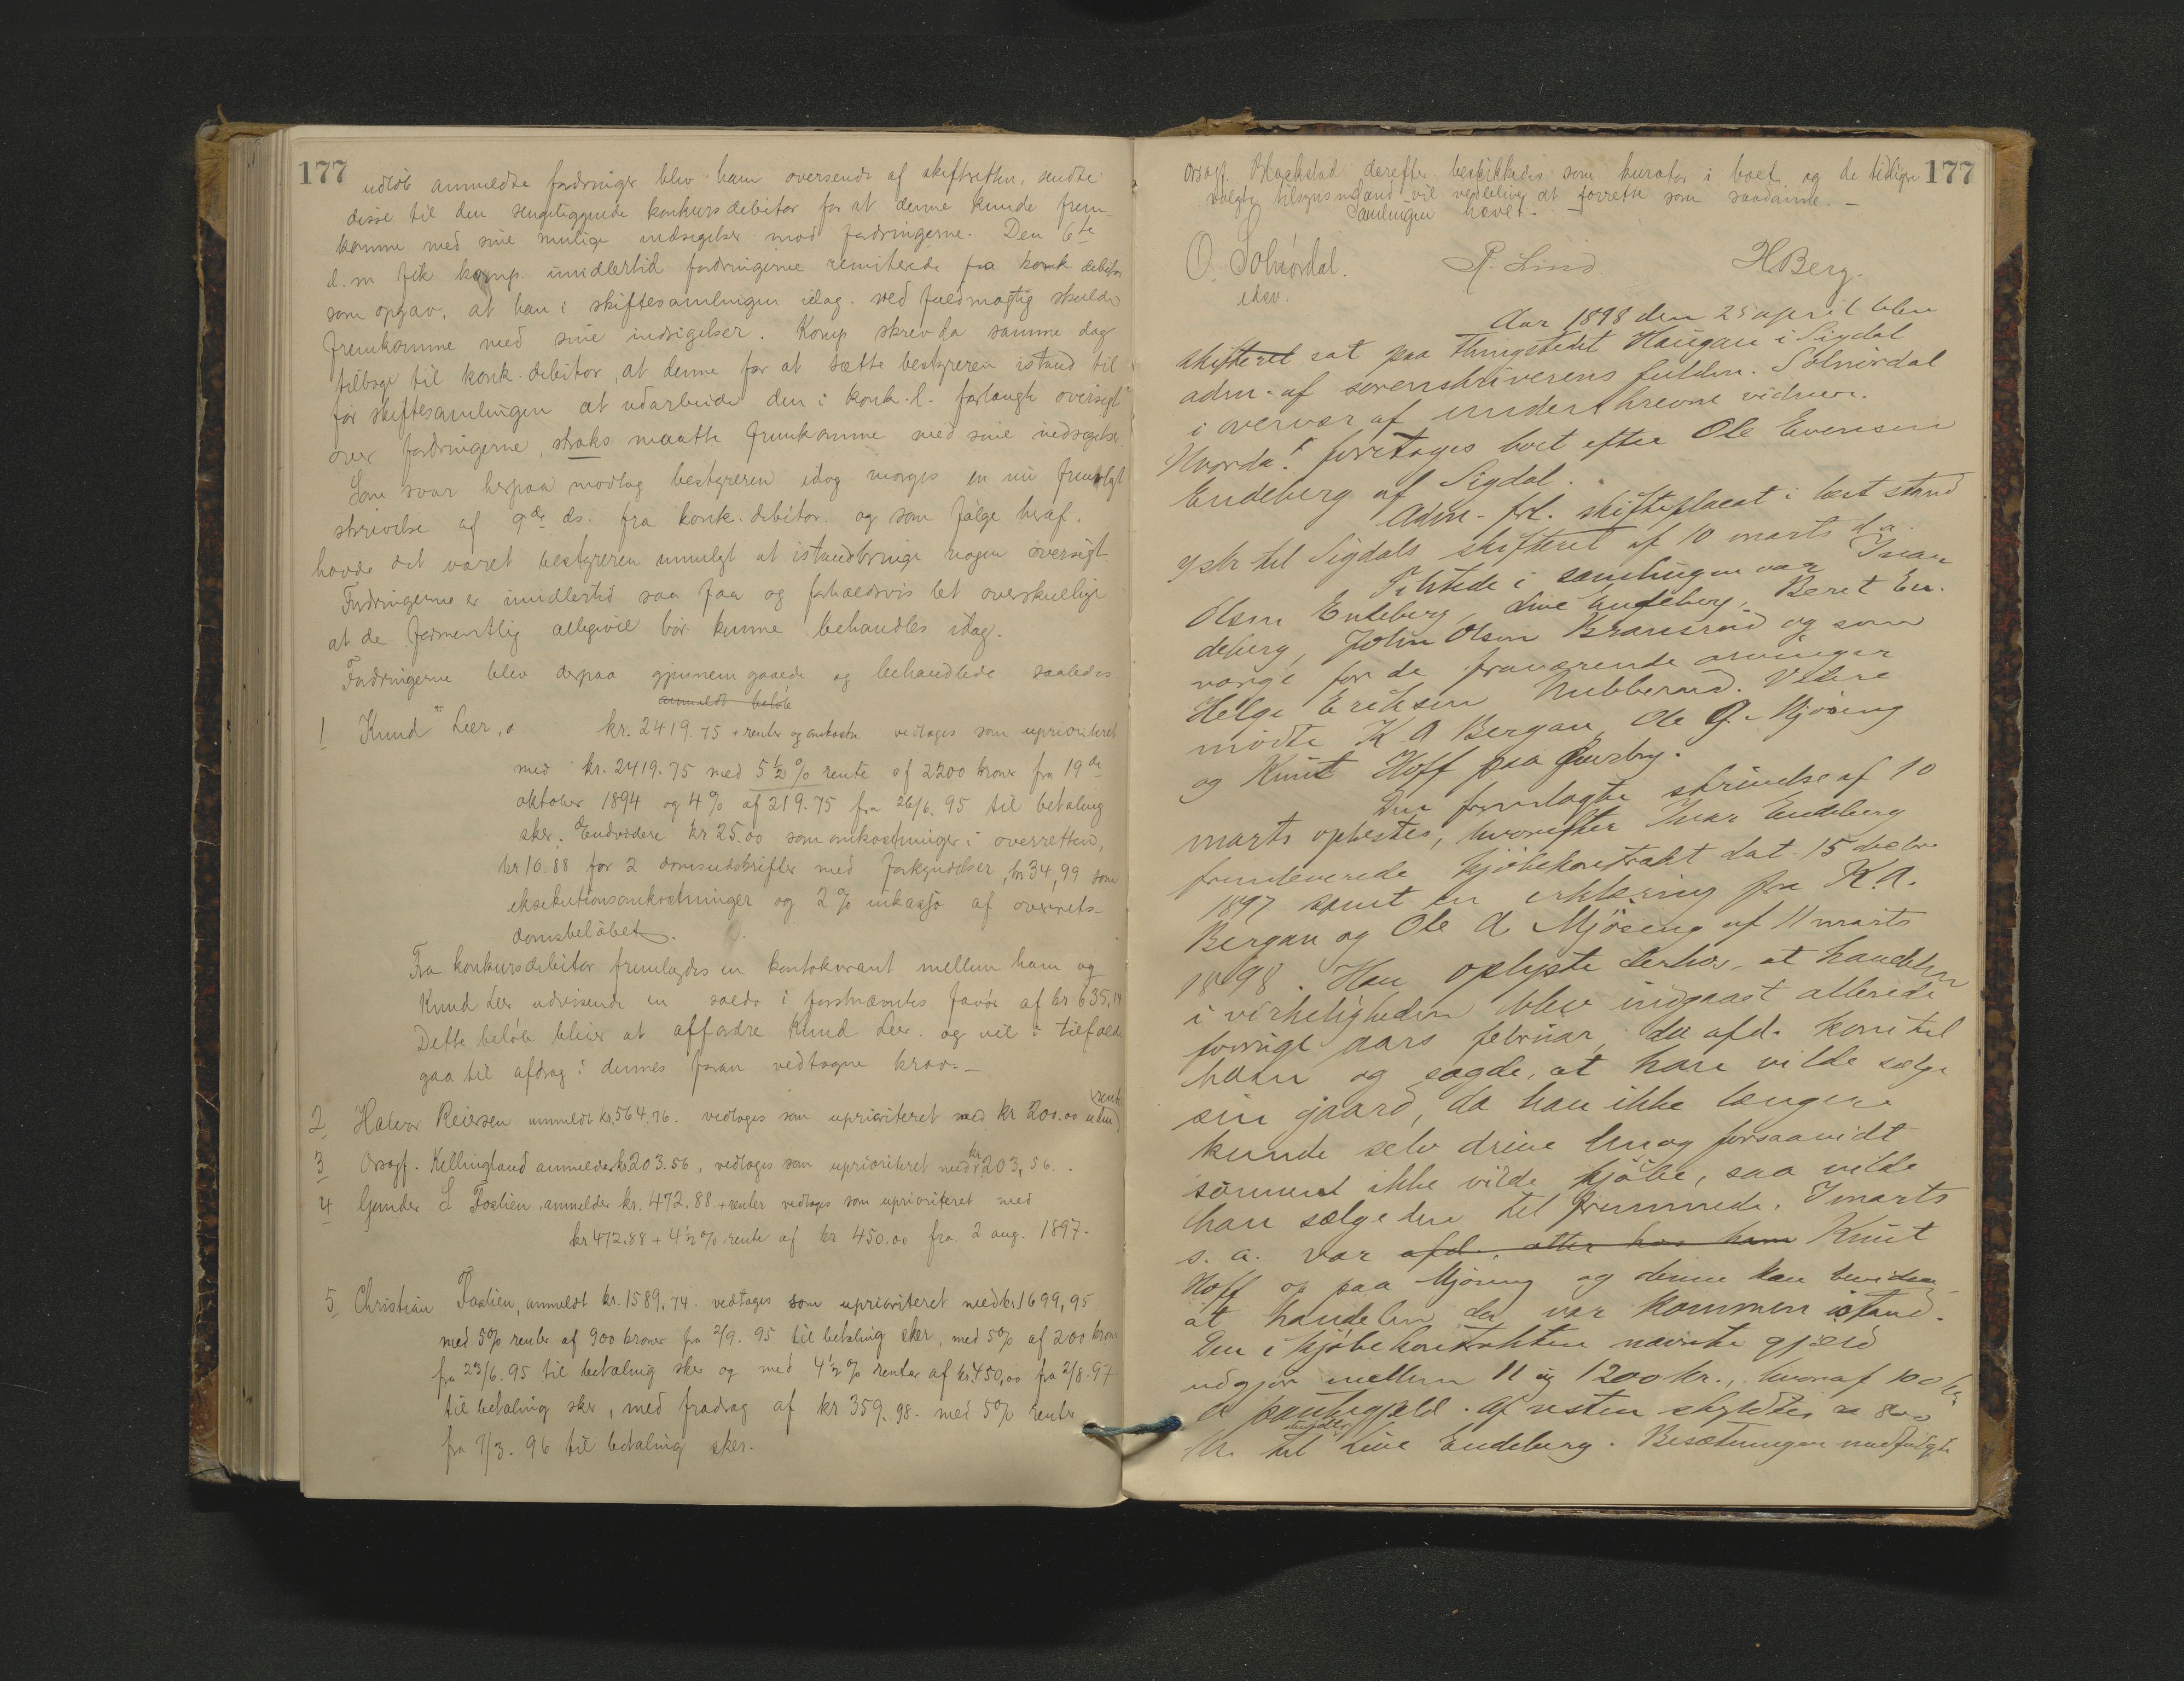 177
udløb anmeldte fordringer blev ham oversendt af skifteretten, sendte
disse til den sengeliggende konkursdebitor for at denne kunde frem-
komme med sine mulige indsigelser mod fordringerne. Den 6te
d. m fik komp. imidlertid fordringerne remitterede fra konk debitor
som opgav, at han i skiftesamlingen idag ved fuldmægtig skulde
fremkomme med sine indsigelser. Komp skrev da samme dag
tilbage til konk. debitor, at denne for at sætte bestyreren istand til
før skiftesamlingen at udarbeide den i konk. l. forlangte oversigt
over fordringerne, straks maatte fremkomme med sine indsigelser.
Som svar herpaa modtog bestyreren idag morges en nu fremlagt
skrivelse af 9de ds. fra konk. debitor og som følge heraf
havde det været bestyreren umuligt at istandbringe nogen oversigt.
Fordringerne er imidlertid saa faa og forholdsvis let overskuelige
at de formentlig alligevel bør kunne behandles idag.
Fordringerne blev derpaa gjennemgaaede og behandlede saaledes
anmeldt beløb
1 Knud Leer, kr. 2419.75 + renter og omkostn. vedtages som uprioriteret
med kr. 2419.75 med 5 1/2 % rente af 2200 kroner fra 19de
oktober 1894 og 4% af 219.75 fra 26/6. 95 til betaling
sker. Endvidere kr 25.00 som omkostninger i overretten,
kr 10.88 for 2 domsudskrifter med forkyndelser, kr 34,99 som
eksekutionsomkostninger og 2% inkasso af overrets-
domsbeløbet.
Fra konkursdebitor fremlagdes en kontokurant mellem ham og
Knud Leer udvisende en saldo i førstnævntes favør af kr 635,14
Dette beløb bliver at affordre Knud Leer og vil i tilfælde
gaa til afdrag i dennes foran vedtagne krav. —
2 Halvor Reiersen anmeldt kr. 564.76. vedtages som uprioriteret med kr 200.00 uden renter
3 Orsagf. Kellingland anmelder kr 203.56, vedtages som uprioriteret med kr 203,56.
4 Gunder L Foslien, anmelder kr. 472.88 + renter vedtages som uprioriteret med
kr 472.88 + 4 1/2 % rente af kr 450.00 fra 2 aug. 1897.
5 Christian Foslien, anmeldt kr. 1589,74. vedtages som uprioriteret med kr 1699,95
med 5% renter af 900 kroner fra 2/9. 95 til betaling sker, med 5% af 200 kroner
fra 23/6. 95 til betaling sker og med 4 1/2 % renter af kr. 450,00 fra 2/8. 97
til betaling sker, med fradrag af kr 359.98. med 5% renter
fra 7/3. 96 til betaling sker.
177
Orsagf. Blackstad derefter beskikkedes som kurator i boet og de tidligere
valgte tilsynsmænd vil vedblive at forrette som saadanne. —
Samlingen hævet.
O. Solnørdal. P. Lind H Berg.
edsv.
Aar 1898 den 25 april blev
skifteret sat paa thingstedet Haugan i Sigdal
adm. af sorenskriverens fuldm. Solnørdal
i overvær af underskrevne vidner.
Hvorda: foretages boet efter Ole Evensen
Endeberg af Sigdal.
Adm. frl. skifteplacat i læst stand
og skr. til Sigdals skifteret af 10 marts d. a.
Tilstede i samlingen var Ivar
Olsen Endeberg, Live Endeberg, Beret En-
deberg, John Olsen Bransrud og som
værge for de fraværende arvinger
Helge Eriksen Nubberud. Videre
mødte K A Bergan, Ole G. Mjøsing
og Knut Hoff paa Gursby.
Den fremlagte skrivelse af 10
marts oplæstes, hvorefter Ivar Endeberg
fremleverede kjøbekontrakt dat. 15 decbr
1897 samt en erklæring fra K. A.
Bergan og Ole A Mjøsing af 11 marts
1898. Han oplyste derhos, at handelen
i virkeligheden blev indgaaet allerede
forrige aars februar, da afd. kom til
ham og sagde, at han vilde sælge
sin gaard, da han ikke længere
kunde selv drive den og forsaavidt
sønnen ikke vilde kjøbe, saa vilde
han sælge den til fremmede. I marts
s. a. var afd. atter hos ham Knut
Hoff op paa Mjøsing og denne kan bevidne
at handelen da var kommen istand.
Den i kjøbekontrakten nævnte gjæld
udgjør mellem 11 og 1200 kr., hvoraf 100 kr
er pantegjæld. Af resten skyldtes ca 800
kr. til Live Endeberg. Besætningen medfulgte